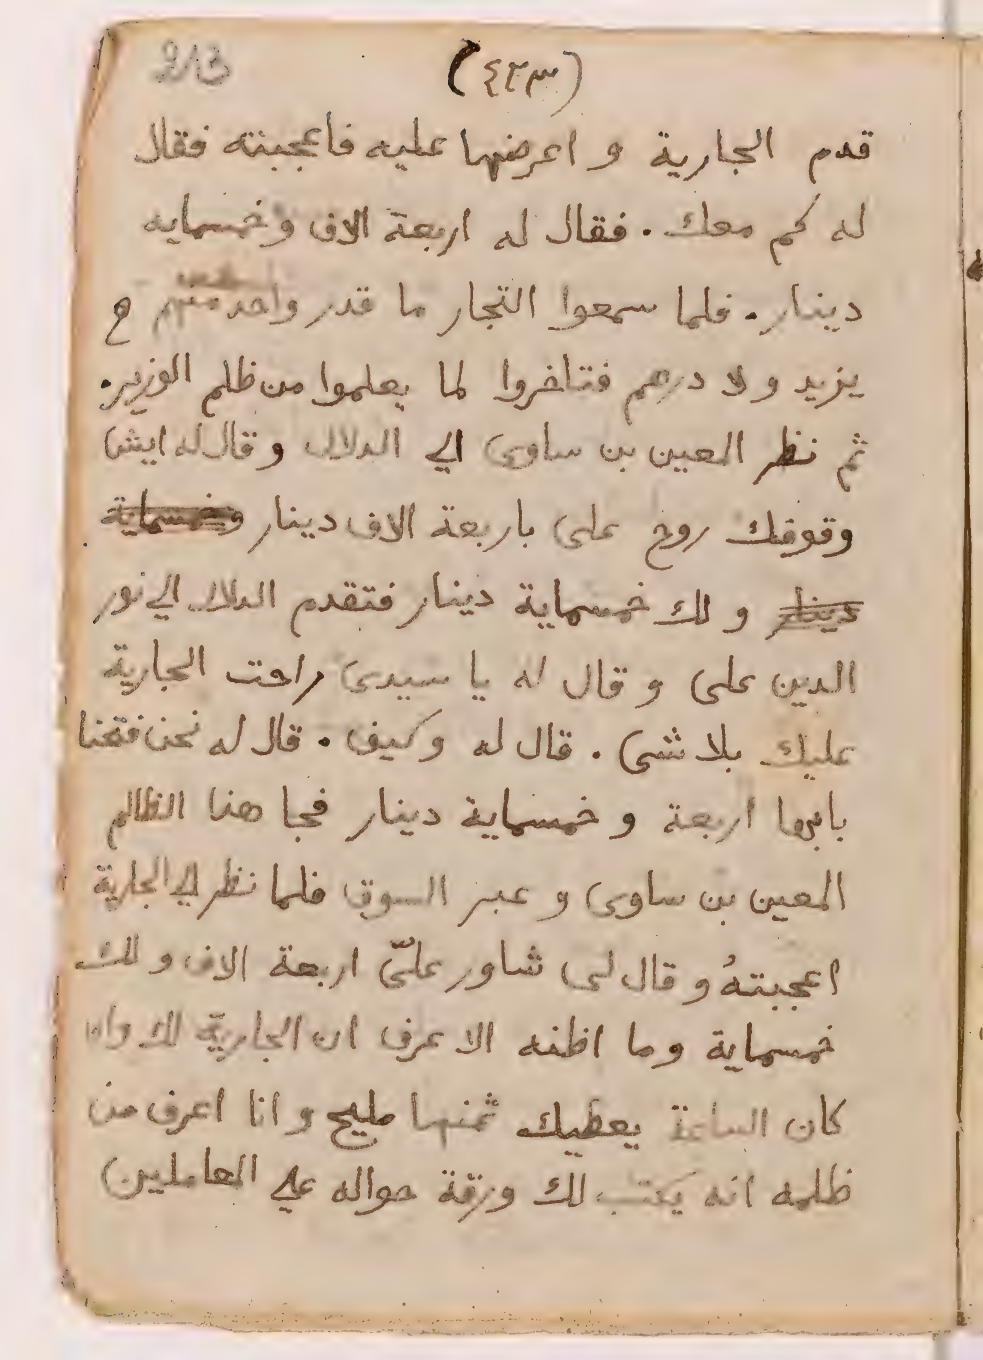 213
(٤٢٣)
قدم الجارية و اعرضها عليه فاعجبته فقال
له كم معك . فقال له اربعة الاف وخمسمايه
دينار . فلما سمعوا التجار ما قدر واحد منهم
يزيد ولا درهم فتاخروا لما يعلموا من ظلم الوزير .
ثم نظر المعين بن ساوى الي الدلال وقال له ايش
وقوفك روح على باربعة الاف دينار وخمسماية
دينار و لك خمسماية دينار فتقدم الدلال الي نور
الدين على و قال له يا سيدى راحت الجارية
عليك بلا شى . قال له وكيف . قال له نحن فتحنا
بابها اربعة و خمسماية دينار فجا هذا الظالم
المعين بن ساوى و عبر السوق فلما نظر الي الجارية
اعجبتهُ و قال لى شاور علىّ اربعة الاف و لك
خمسماية وما اظنه الا عرف ان الجارية لك وان
كان الساعة يعطيك ثمنها مليح و انا اعرف من
ظلمه انه يكتب لك ورقة حواله علي المعاملين